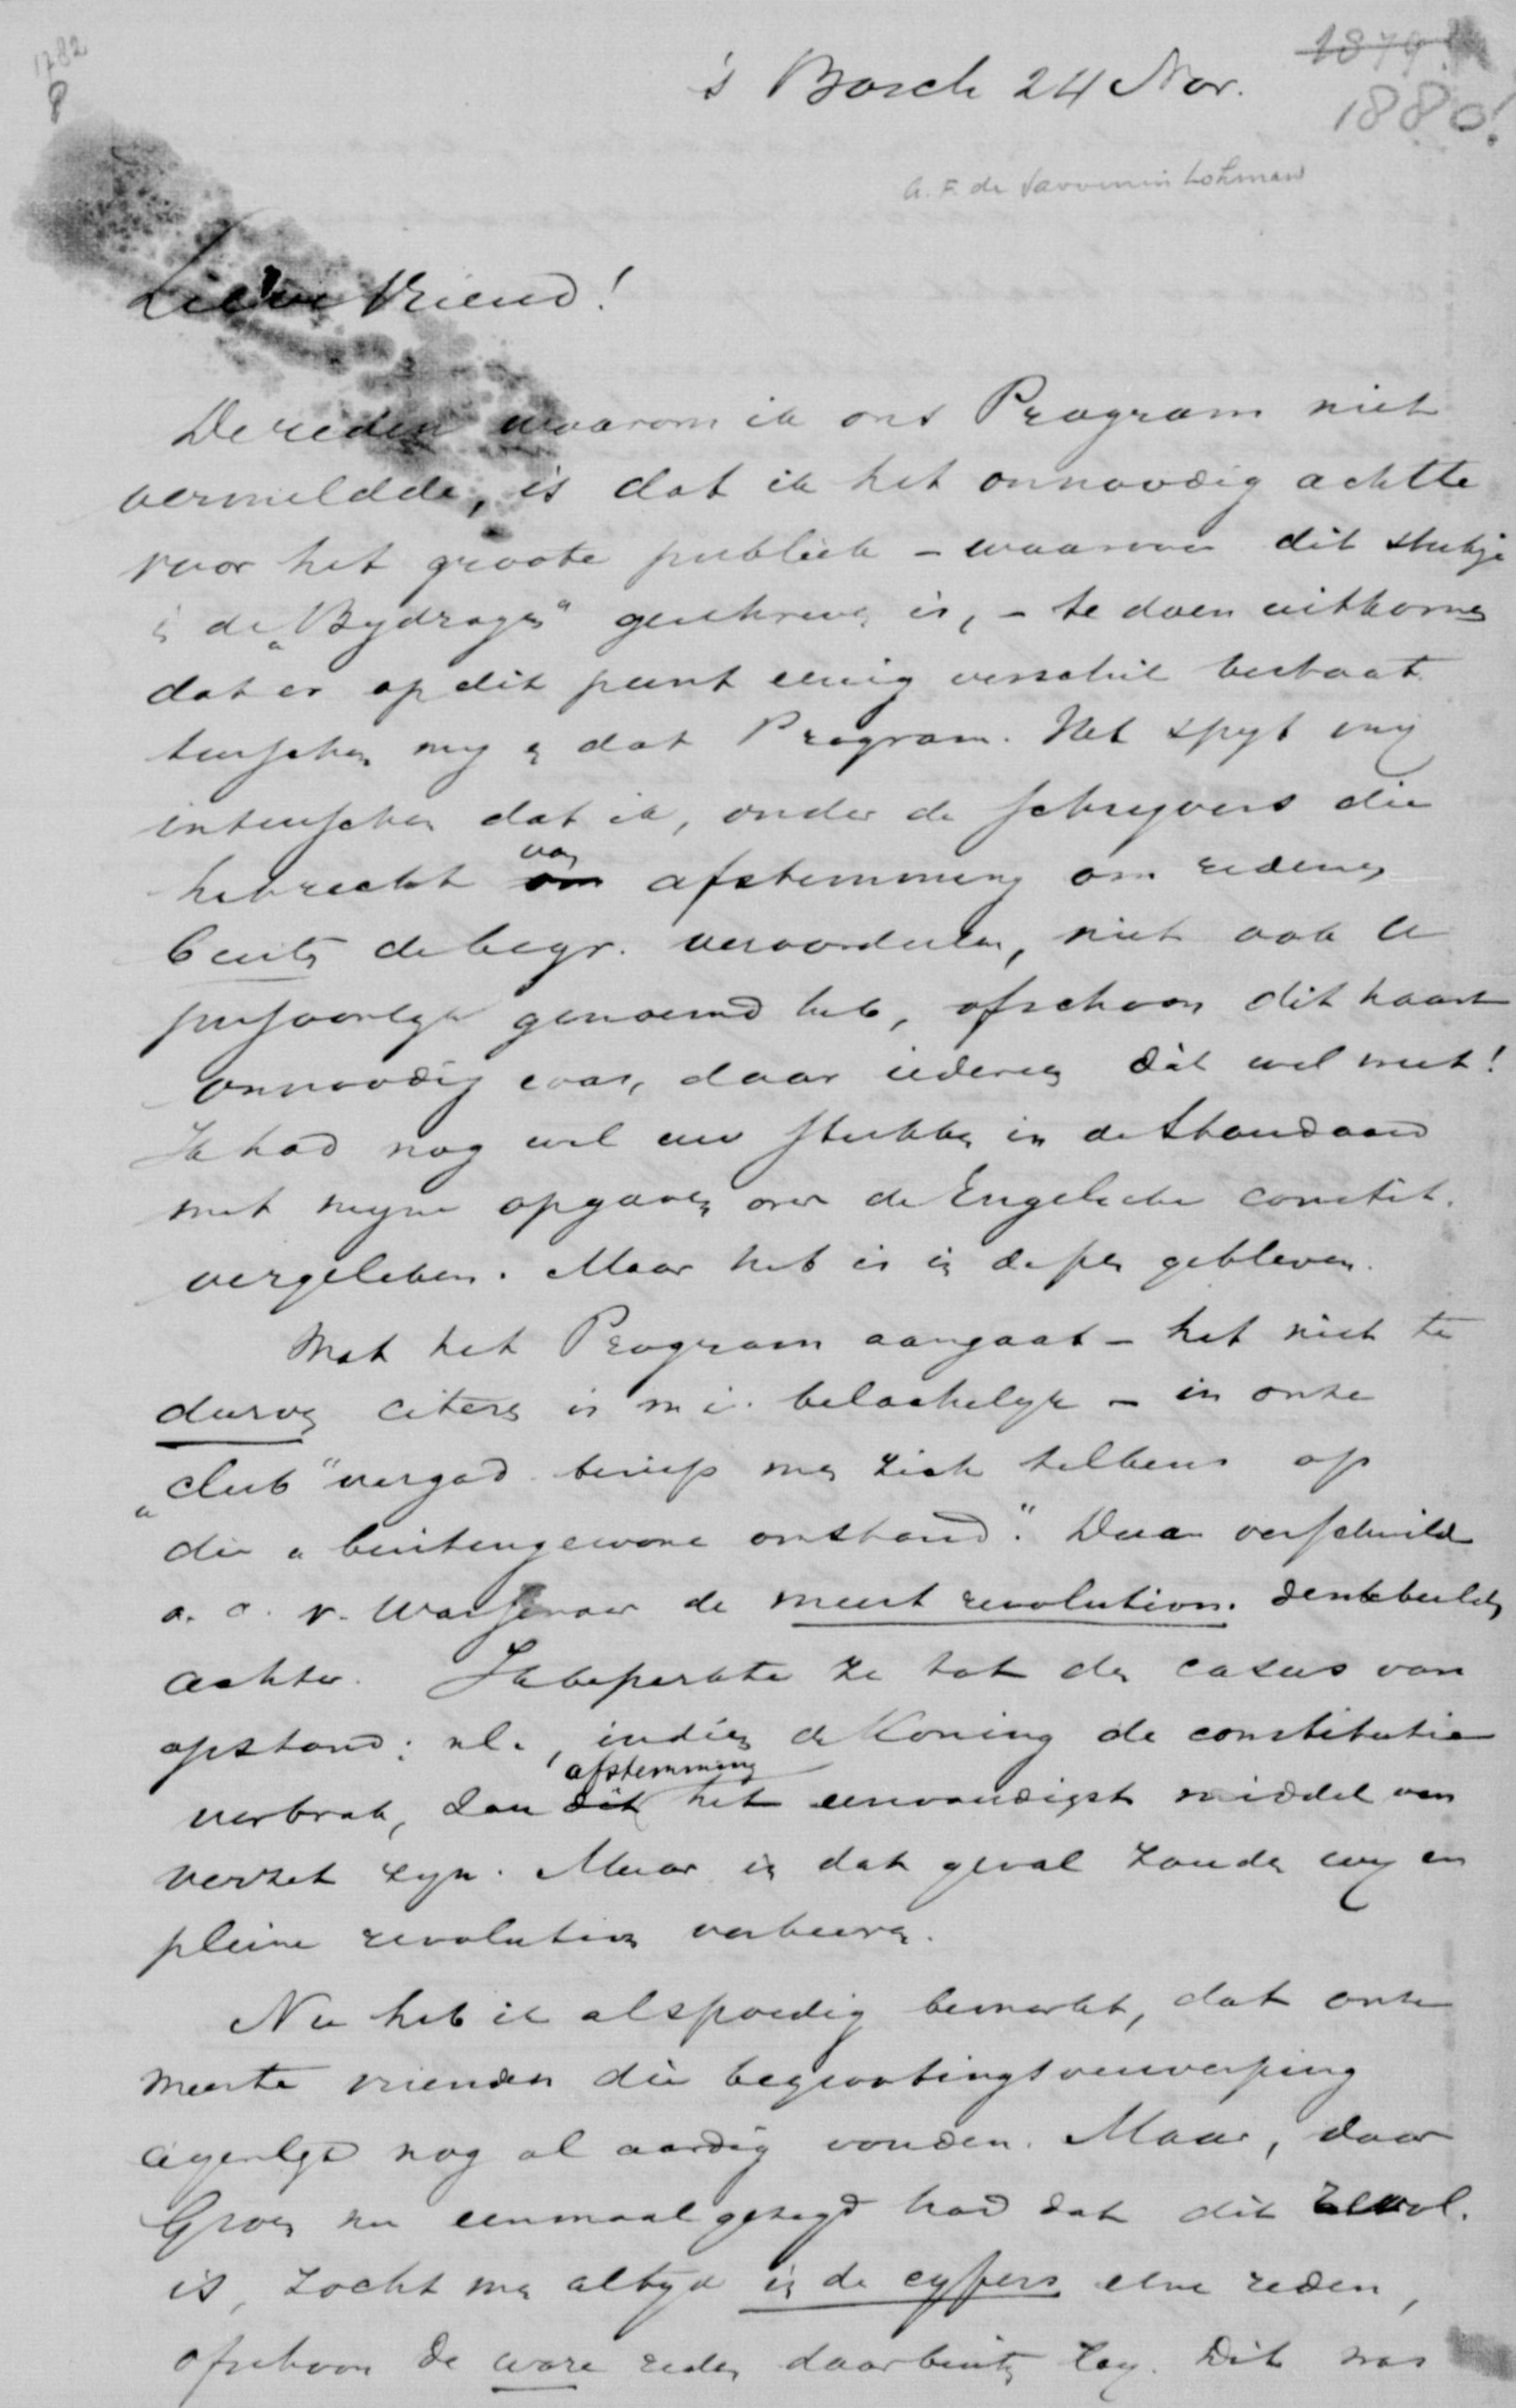 1282
8
's Bosch 24 Nov.
1879
1880!
A. F. de Savornin Lohman
Lieve Vriend!
De reden waarom ik ons Program niet
vermeldde, is dat ik het onnoodig achtte
voor het groote publiek – waarvoor dit stukje
in de „Bydragen" geschreven is, – te doen uitkomen
dat er op dit punt eenig verschil bestaat
tusschen my en dat Program. Het spyt my
intusschen dat ik, onder de schryvers die
het recht om van afstemming om redenen
buiten de begr. veroordeelen, niet ook U
persoonlyk genoemd heb, ofschoon dit haast
onnoodig was, daar iedereen dat wel weet!
Ik had nog wel uw stukken in de Standaard
met myne opgaven over de Engelsche constit.
vergeleken. Maar het is in de pen gebleven.
Wat het Program aangaat – het niet te
durven citeren is m.i. belachelyk – in onze
„club" vergad. beriep men zich telkens op
die „buitengewone omstand." Daar verschuilde
o. a. v. Wassenaer de meest revolution. denkbeelden
achter. Ik beperkte ze tot den casus van
opstand: nl., indien de Koning de constitutie
verbrak, zou dit afstemming het eenvoudigste middel van
verzet zyn. Maar in dat geval zouden wy en
pleine revolution verkeeren.
Nu heb ik alspoedig bemerkt, dat onze
meeste vrienden die begrootingsverwerping
eigenlyk nog al aardig vonden. Maar, daar
Groen nu eenmaal gezegd had dat dit revol.
is, zocht men altyd in de cyfers eene reden,
ofschoon de ware reden daarbuiten lag. Dit was